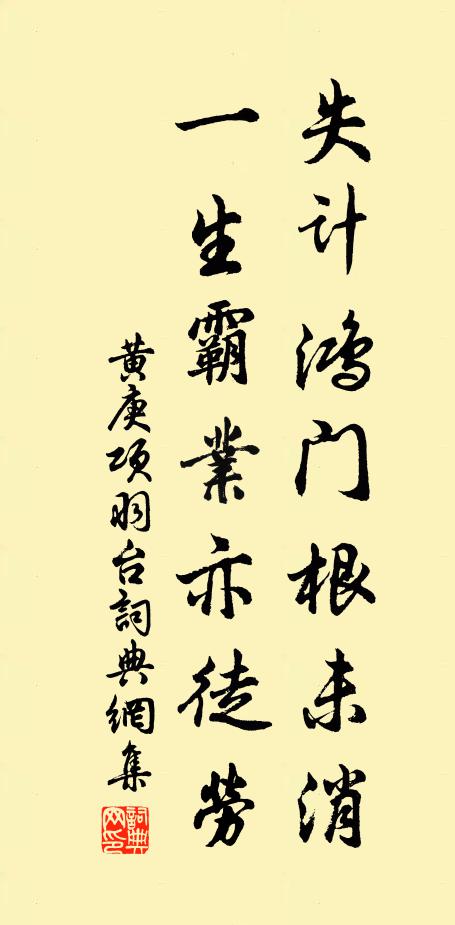 失计鸿门根未消
一生霸業亦徒勞
黄庚项羽台詞典網集
詞典網印